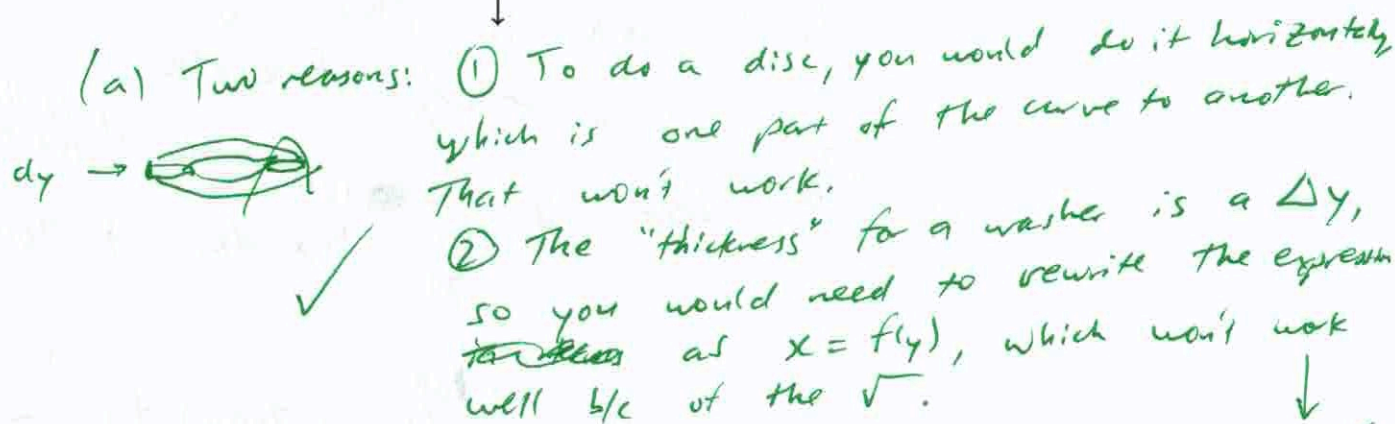 (a) Two reasons: ① To do a disc, you would do it horizontally
which is one part of the curve to another.
dy → That won't work.
② The "thickness" for a washer is a Δy,
so you would need to rewrite the expression
as x = f(y), which won't work
well b/c of the √.